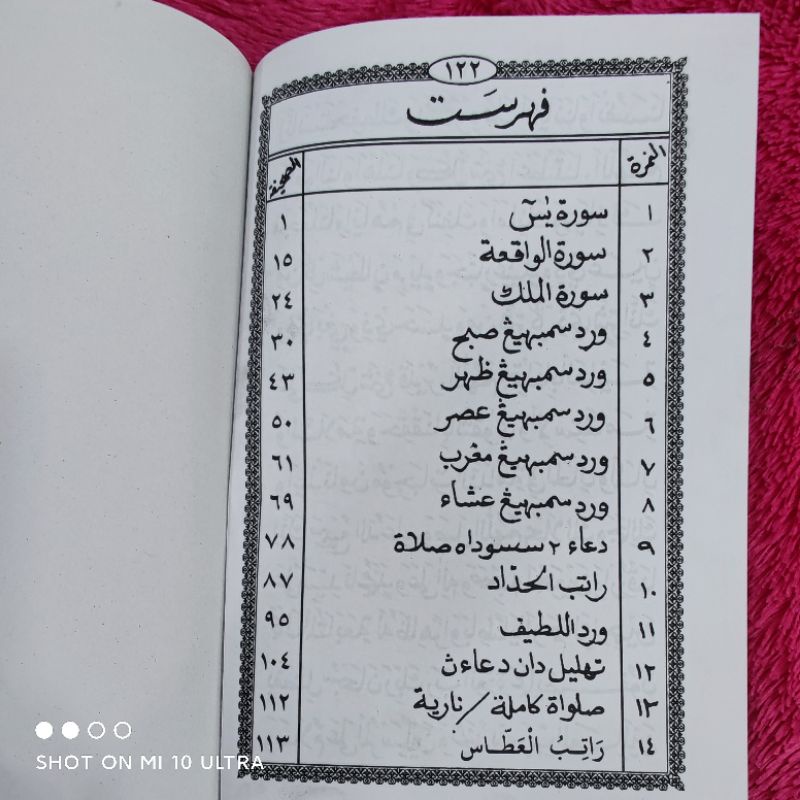 ١٢٢
فهرست
النمرة الصحيفة
١ سورة يٰسٓ ١
٢ سورة الواقعة ١٥
٣ سورة الملك ٢٤
٤ ورد سمبهيڠ صبح ٣٠
٥ ورد سمبهيڠ ظهر ٤٣
٦ ورد سمبهيڠ عصر ٥٠
٧ ورد سمبهيڠ مغرب ٦١
٨ ورد سمبهيڠ عشاء ٦٩
٩ دعاء ٢ سسوداه صلاة ٧٨
١٠ راتب الحدّاد ٨٧
١١ ورد اللطيف ٩٥
١٢ تهليل دان دعاءث ١٠٤
١٣ صلواة كاملة / نارية ١١٢
١٤ رَاتِبُ الْعَطَّاس ١١٣
SHOT ON MI 10 ULTRA